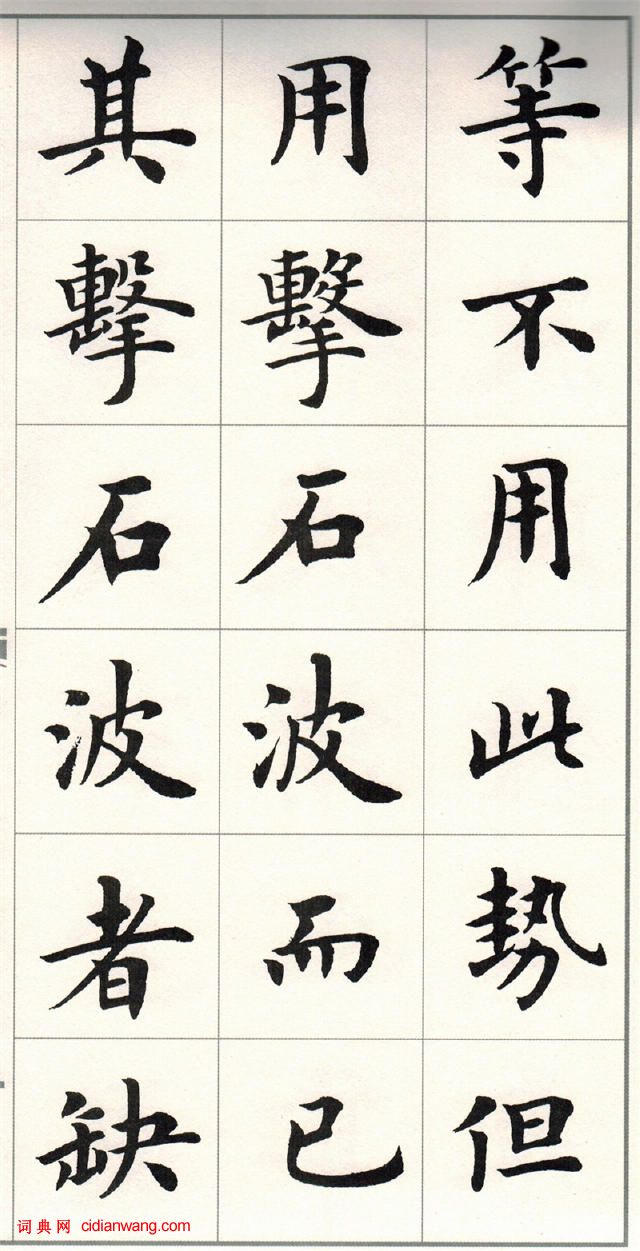 等不用此勢但
用擊石波而已
其擊石波者缺
词典网 cidianwang.com